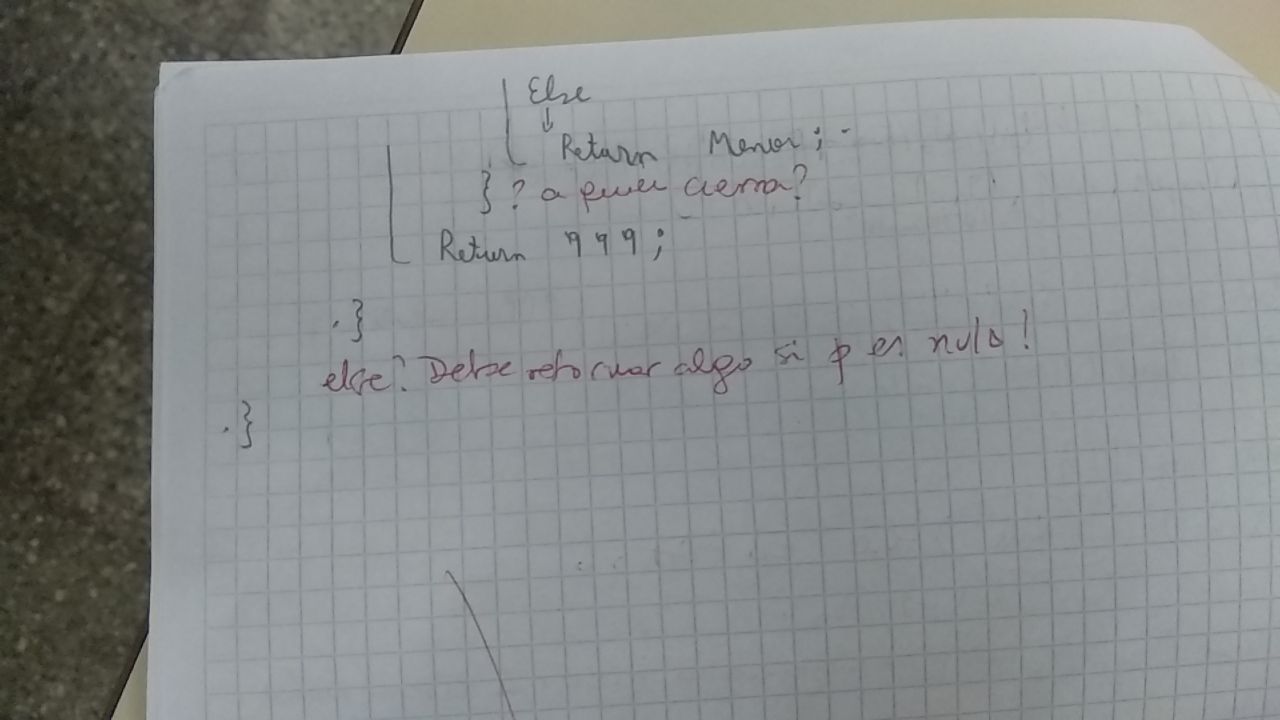 Else
↓
Return Menor;
} ? a quien cierra?
Return 999;
}
else? Debe retornar algo si p es nulo!
}